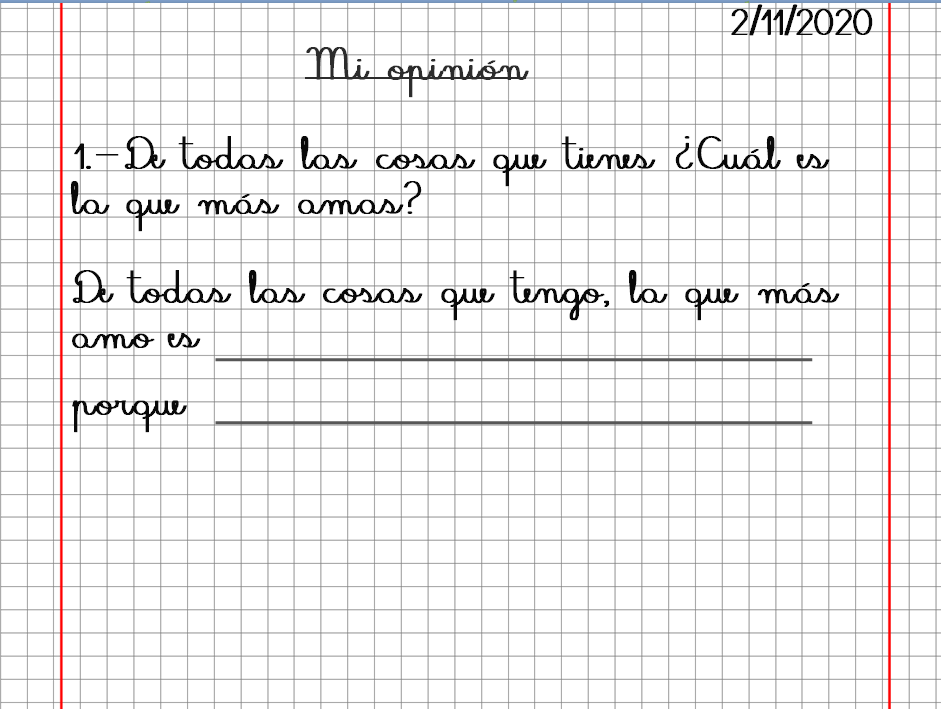 2/11/2020
Mi opinión
1.-De todas las cosas que tienes ¿Cuál es
la que más amas?
De todas las cosas que tengo, la que más
amo es
porque